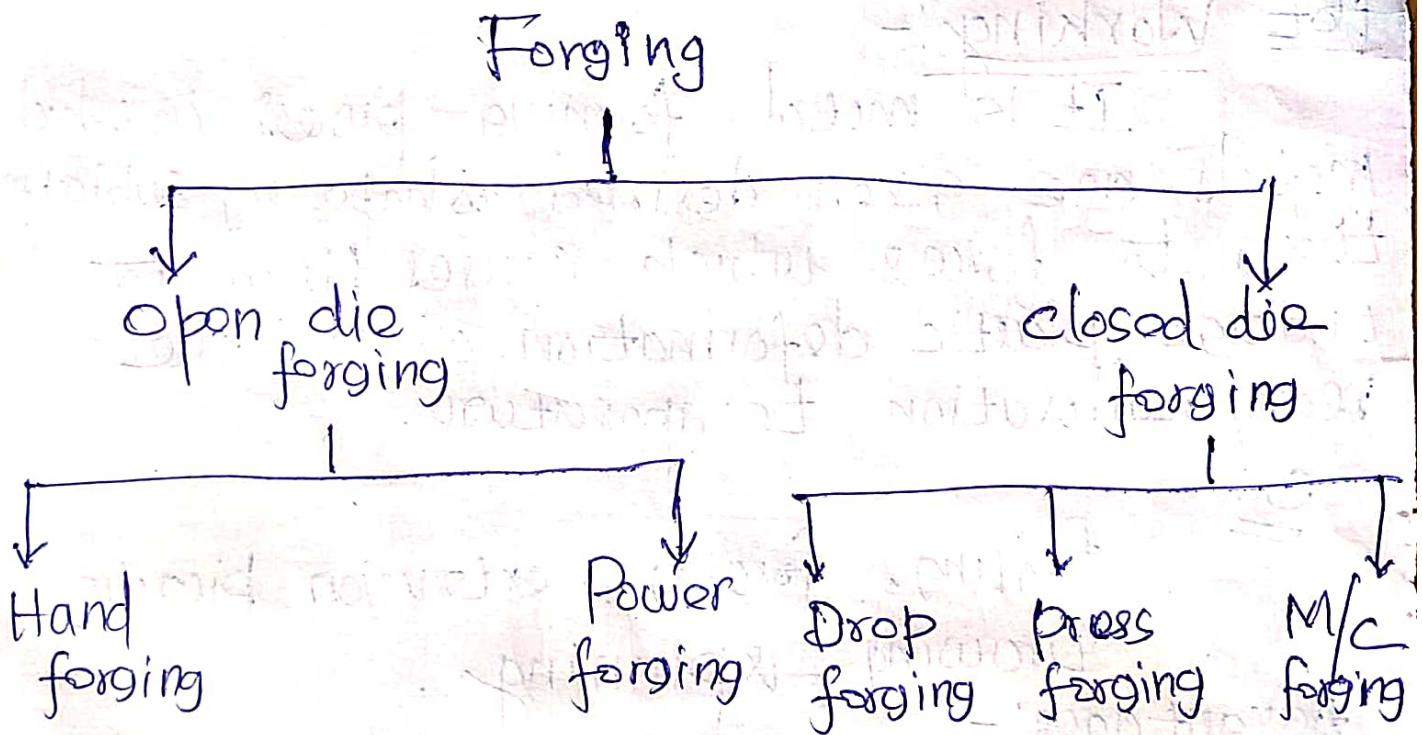 Forging
Open die
forging
closed die
forging
Hand
forging
Power
forging
Drop
forging
press
forging
M/C
forging